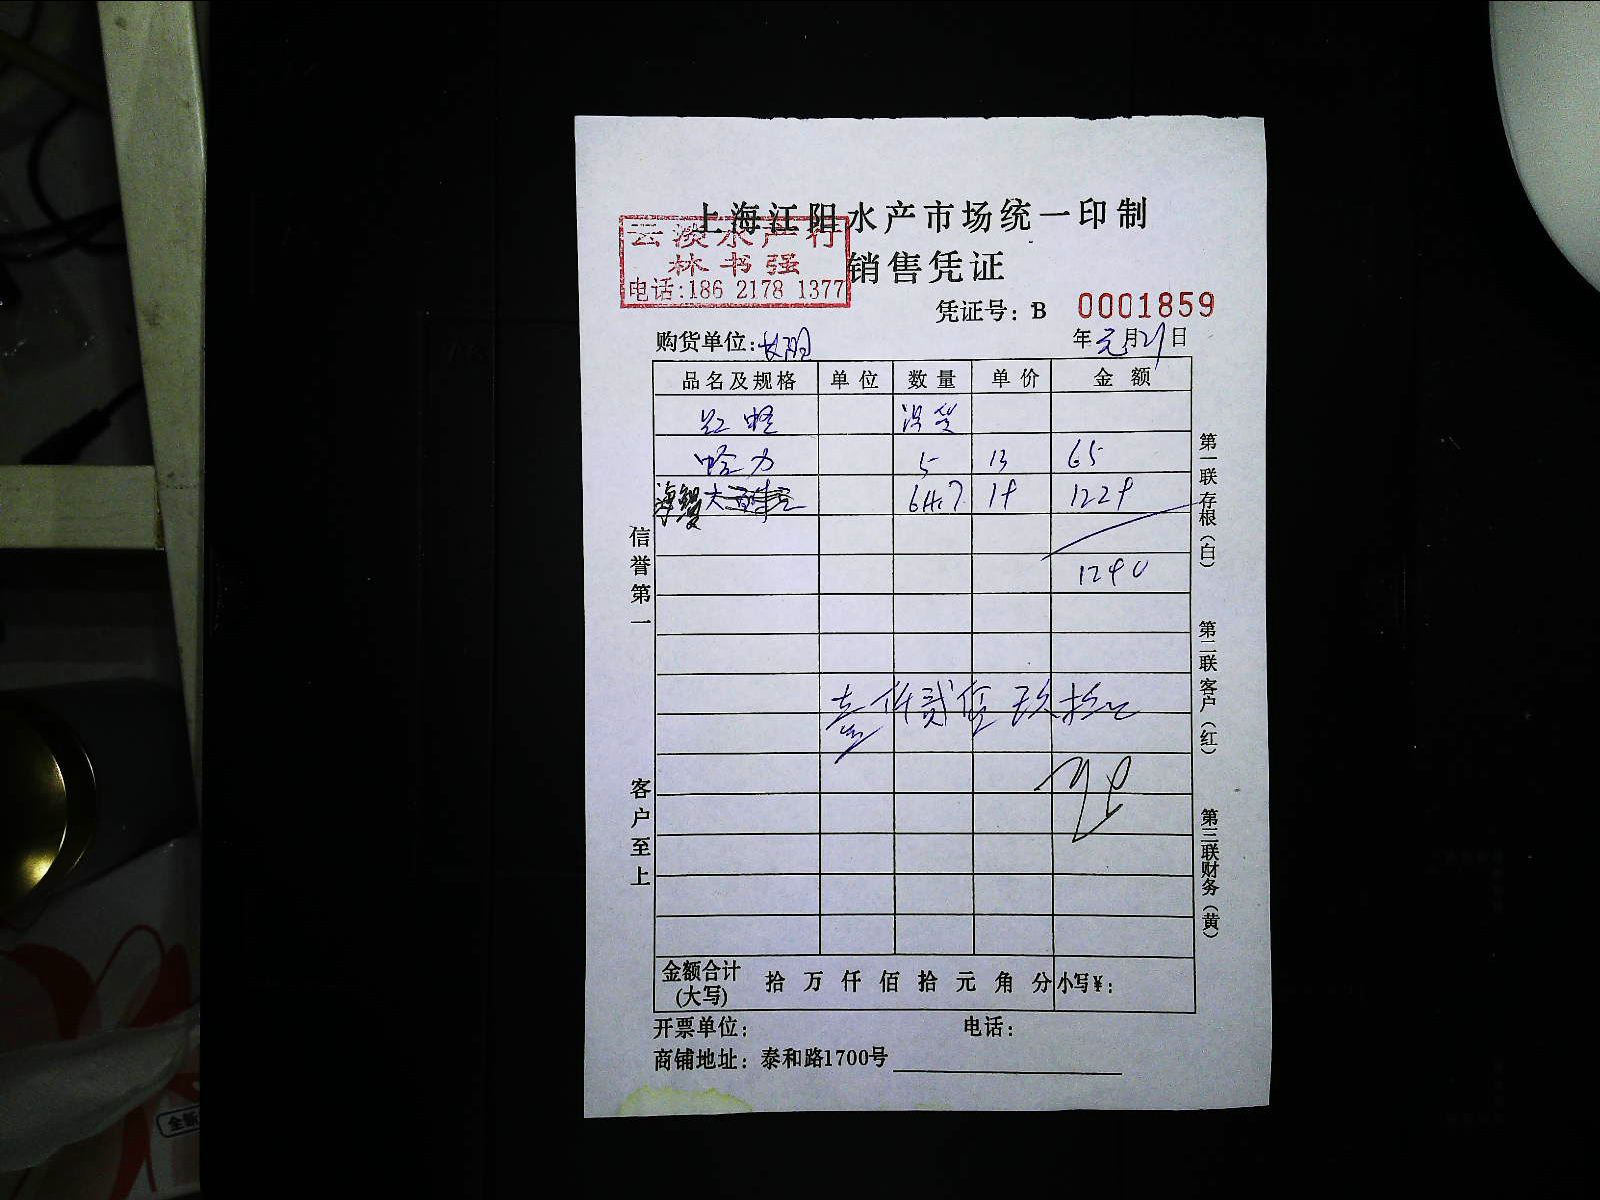 上海江阳水产市场统一印制
云淡水产行
林书强
电话:186 2178 1377
销售凭证
凭证号: B 0001859
购货单位:
年元月21日
品名及规格 单位 数量 单价 金额
红蛏 没货
哈力 5 13 65
64.7 19 1229
1290
壹仟贰佰玖拾元
金额合计(大写) 拾 万 仟 佰 拾 元 角 分 小写¥:
开票单位: 电话:
商铺地址: 泰和路1700号
信誉第一
客户至上
第一联存根(白)
第二联客户(红)
第三联财务(黄)
全新